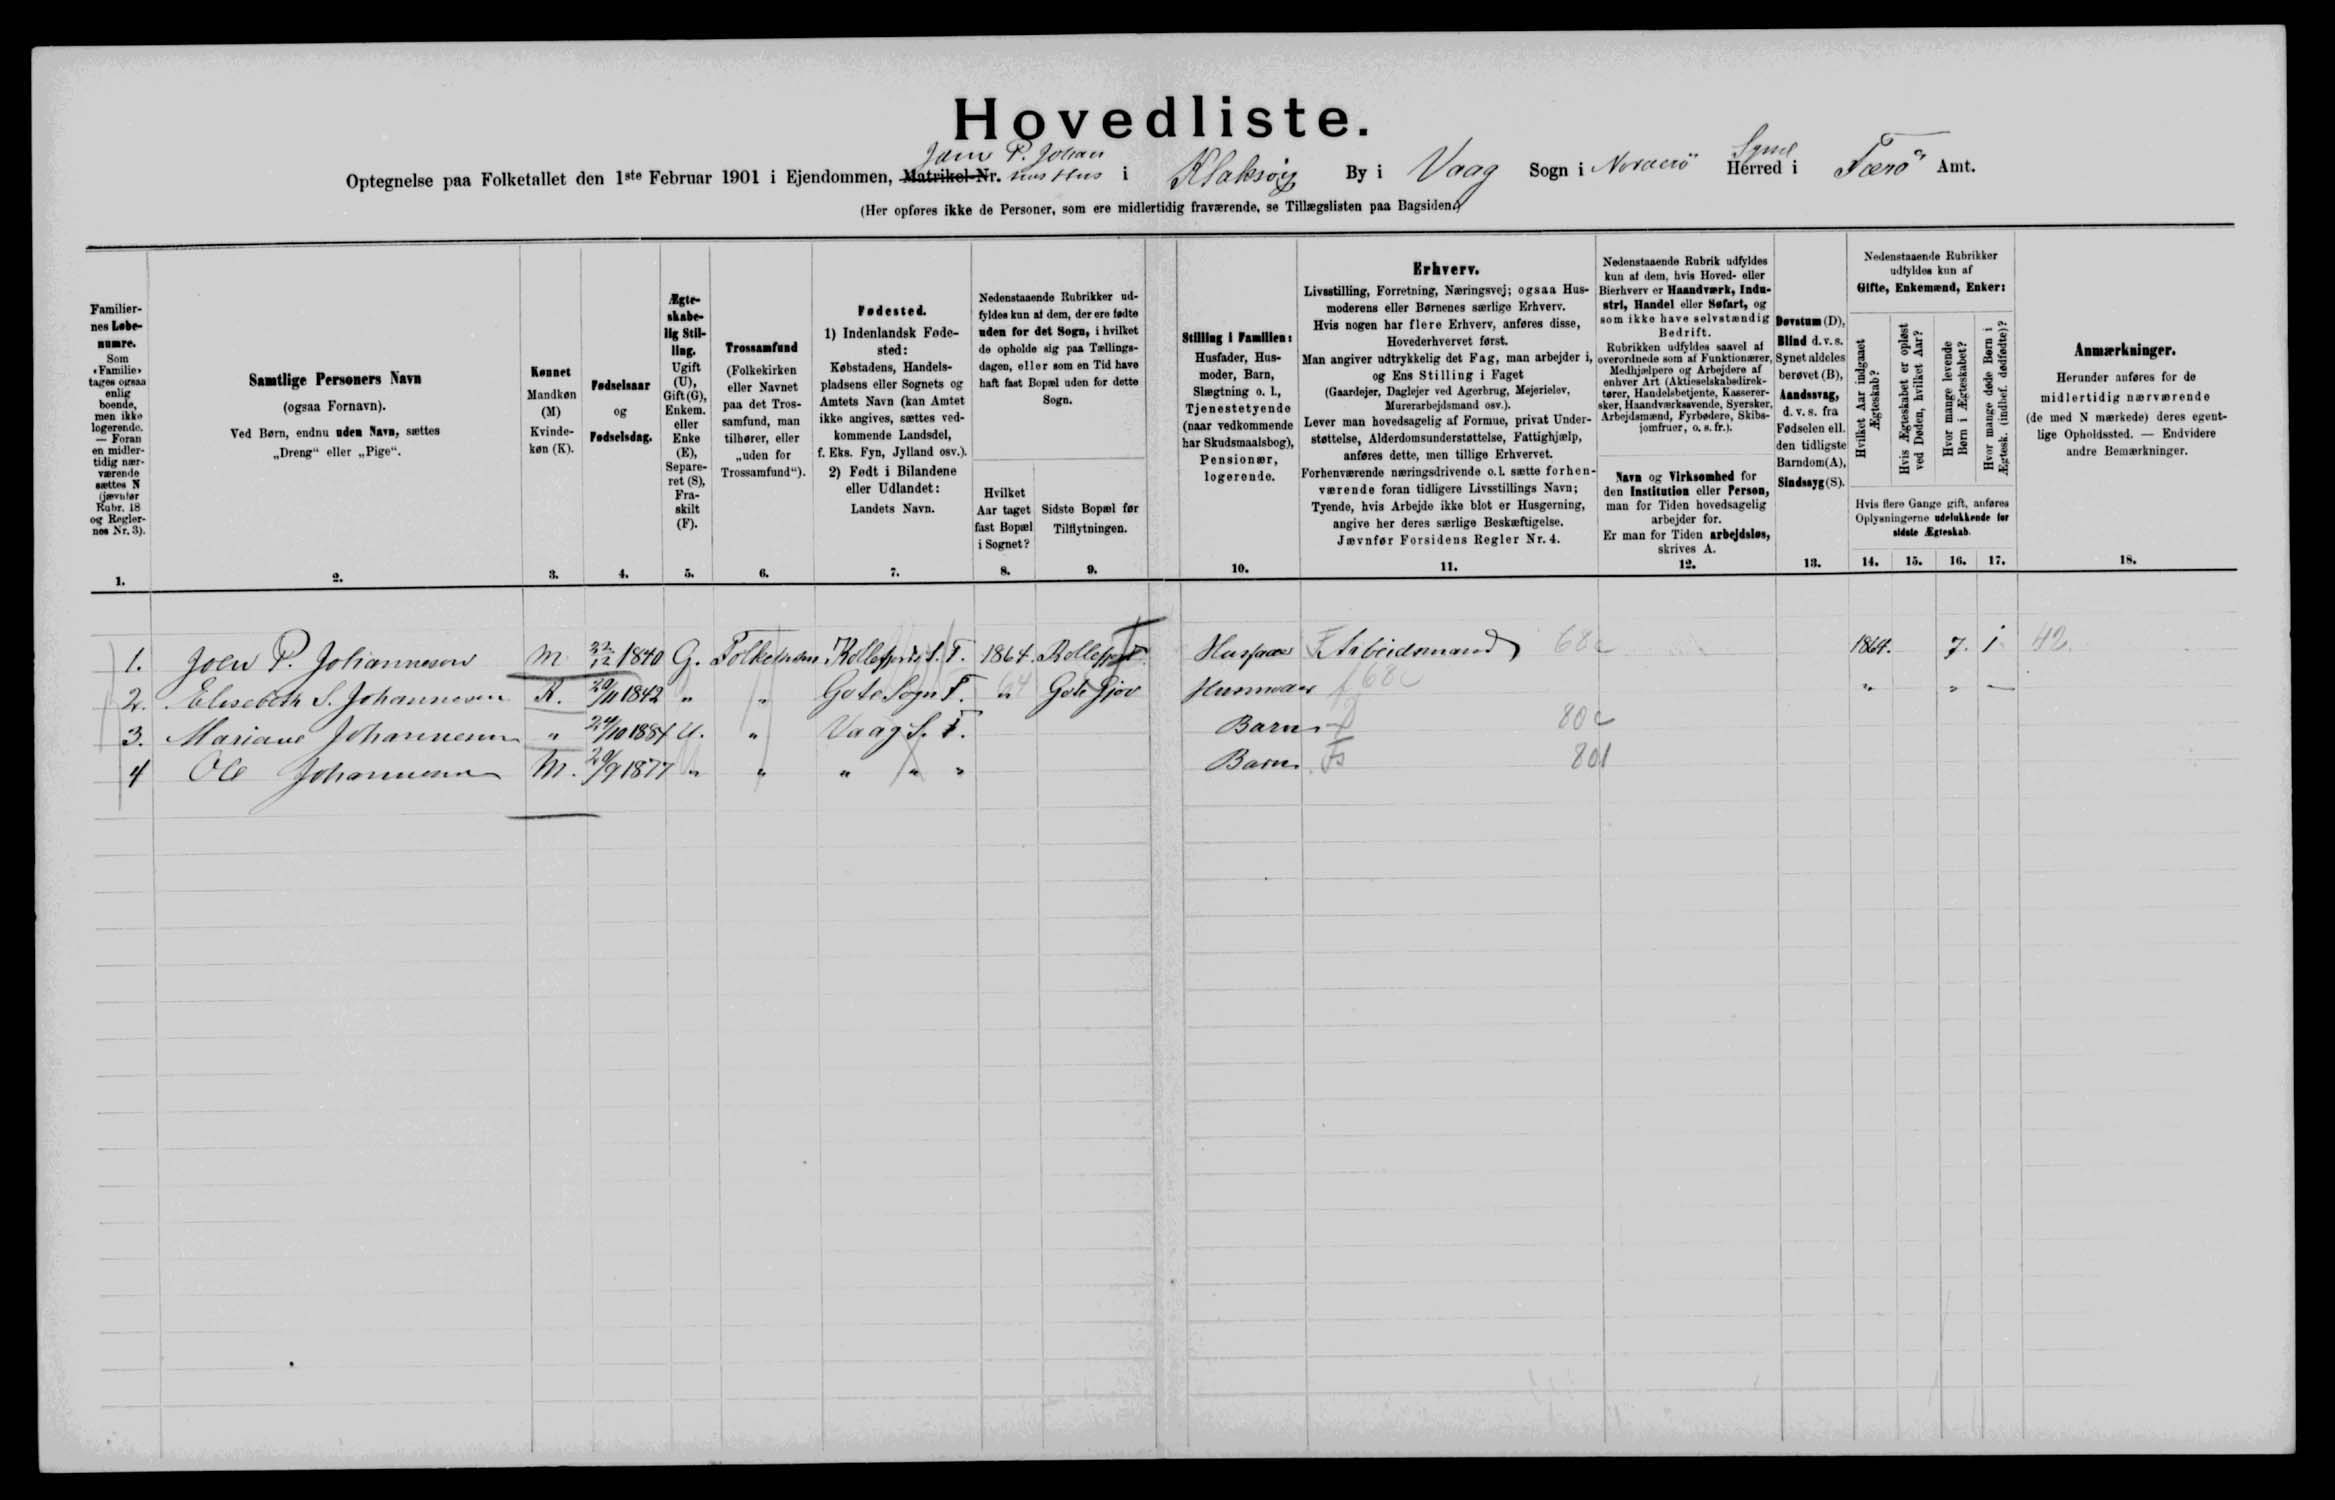 Hovedliste.
Optegnelse paa Folketallet den 1ste Februar 1901 i Ejendommen, Matrikel-Nr. Joen P. Johan nes Hus i Klaksvig By i Vaag Sogn i Norderö Syssel Herred i Færö Amt.
(Her opføres ikke de Personer, som ere midlertidig fraværende, se Tillægslisten paa Bagsiden.)
Familiernes Løbenumre.
Som «Familie» tages ogsaa enlig boende, men ikke logerende. — Foran en midlertidig nærværende sættes N (jævnfør Rubr. 18 og Reglernes Nr. 3).
Samtlige Personers Navn
(ogsaa Fornavn).
Ved Børn, endnu uden Navn, sættes
„Dreng“ eller „Pige“.
Kønnet
Mandkøn (M) Kvindekøn (K).
Fødselsaar
og
Fødselsdag.
Ægteskabelig Stilling.
Ugift (U), Gift (G), Enkem. eller Enke (E), Separeret (S), Fraskilt (F).
Trossamfund
(Folkekirken eller Navnet paa det Trossamfund, man tilhører, eller „uden for Trossamfund“).
Fødested.
1) Indenlandsk Fødested:
Købstadens, Handelspladsens eller Sognets og Amtets Navn (kan Amtet ikke angives, sættes vedkommende Landsdel, f. Eks. Fyn, Jylland osv.).
2) Født i Bilandene eller Udlandet:
Landets Navn.
Nedenstaaende Rubrikker udfyldes kun af dem, der ere fødte uden for det Sogn, i hvilket de opholde sig paa Tællingsdagen, eller som en Tid have haft fast Bopæl uden for dette Sogn.
Hvilket Aar taget fast Bopæl i Sognet?
Sidste Bopæl før Tilflytningen.
Stilling i Familien:
Husfader, Husmoder, Barn, Slægtning o. l., Tjenestetyende (naar vedkommende har Skudsmaalsbog), Pensionær, logerende.
Erhverv.
Livsstilling, Forretning, Næringsvej; ogsaa Husmoderens eller Børnenes særlige Erhverv.
Hvis nogen har flere Erhverv, anføres disse, Hovederhvervet først.
Man angiver udtrykkelig det Fag, man arbejder i, og Ens Stilling i Faget
(Gaardejer, Daglejer ved Agerbrug, Mejerielev, Murerarbejdsmand osv.).
Lever man hovedsagelig af Formue, privat Understøttelse, Alderdomsunderstøttelse, Fattighjælp, anføres dette, men tillige Erhvervet.
Forhenværende næringsdrivende o. l. sætte forhenværende foran tidligere Livsstillings Navn;
Tyende, hvis Arbejde ikke blot er Husgerning, angive her deres særlige Beskæftigelse.
Jævnfør Forsidens Regler Nr. 4.
Nedenstaaende Rubrik udfyldes kun af dem, hvis Hoved- eller Bierhverv er Haandværk, Industri, Handel eller Søfart, og som ikke have selvstændig Bedrift.
Rubrikken udfyldes saavel af overordnede som af Funktionærer, Medhjælpere og Arbejdere af enhver Art (Aktieselskabsdirektører, Handelsbetjente, Kasserersker, Haandværkssvende, Syersker, Arbejdsmænd, Fyrbødere, Skibsjomfruer, o. s. fr.).
Navn og Virksomhed for den Institution eller Person, man for Tiden hovedsagelig arbejder for.
Er man for Tiden arbejdsløs, skrives A.
Døvstum (D), Blind d. v. s. Synet aldeles berøvet (B), Aandssvag, d. v. s. fra Fødselen ell. den tidligste Barndom (A), Sindssyg (S).
Nedenstaaende Rubrikker udfyldes kun af
Gifte, Enkemænd, Enker:
Hvilket Aar indgaaet Ægteskab?
Hvis Ægteskabet er opløst ved Døden, hvilket Aar?
Hvor mange levende Børn i Ægteskabet?
Hvor mange døde Børn i Ægtesk. (indbef. dødfødte)?
Hvis flere Gange gift, anføres Oplysningerne udelukkende for sidste Ægteskab.
Anmærkninger.
Herunder anføres for de midlertidig nærværende (de med N mærkede) deres egentlige Opholdssted. — Endvidere andre Bemærkninger.
1. 2. 3. 4. 5. 6. 7. 8. 9. 10. 11. 12. 13. 14. 15. 16. 17. 18.
1. Joen P. Johannesen M 22/12 1840 G. Folkekirken Kollefjords S. F. 1864. Kollefjord Husfader F Arbeidsmand 68c 1864. 7. 1 42
2. Elisebeth S. Johannesen K. 20/11 1842 „ „ Gote Sogn F. „ 64 Gote Gjov Husmoder f 68c „ „ —
3. Mariane Johannesen „ 24/10 1884 U. „ Vaag S. F. Barn 80c
4 Ole Johannesen M. 20/9 1877 „ „ „ „ „ Barn. Fs 801